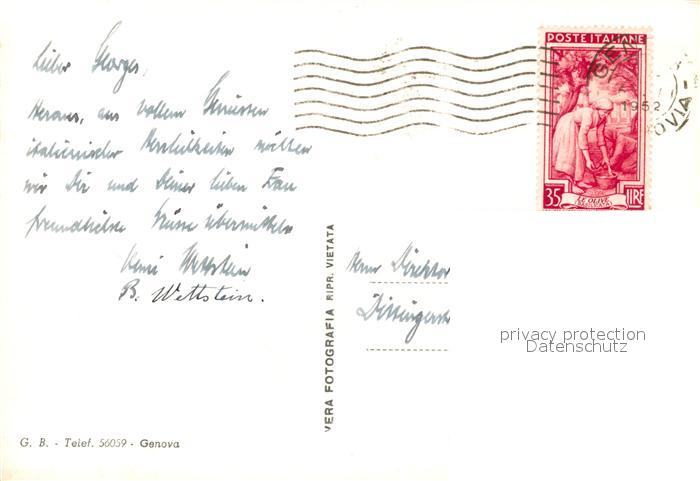 POSTE ITALIANE
GEN
1952
OVIA -
35 LE OLIVE LIRE
Lieber Georges,
Heraus, aus vollem Geniessen
italienischer Herrlichkeiten wollen
wir Dir und Deiner lieben Frau
freundliche Grüsse übermitteln
Wettstein
B. Wettstein.
VERA FOTOGRAFIA RIPR. VIETATA
Herrn Direktor
privacy protection
Datenschutz
G. B. - Telef. 56059 - Genova